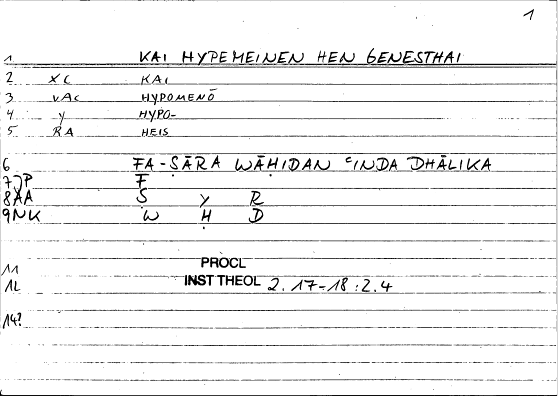 1
1 KAI HYPEMEINEN HEN GENESTHAI
2 XC KAI
3 VAC HYPOMENŌ
4 Y HYPO-
5 RA HEIS
6 FA-ṢĀRA WĀḤIDAN ʿINDA DHĀLIKA
7JP F
8AA Ṣ Y R
9NK W Ḥ D
11 PROCL
12 INST THEOL 2.17-18:2.4
14?